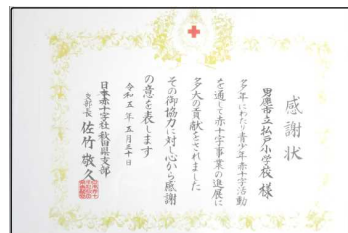 感謝状
男鹿市立払戸小学校 様
多年にわたり青少年赤十字活動
を通して赤十字事業の進展に
多大の貢献をされました
その御協力に対し心から感謝
の意を表します
令和五年五月三十日
日本赤十字社秋田県支部
支部長 佐竹敬久